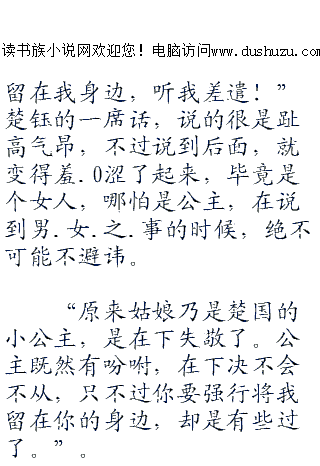 读书族小说网欢迎您！电脑访问www.dushuzu.com
留在我身边，听我差遣！”
楚钰的一席话，说的很是趾
高气昂，不过说到后面，就
变得羞.0涩了起来，毕竟是
个女人，哪怕是公主，在说
到男.女.之.事的时候，绝不
可能不避讳。
“原来姑娘乃是楚国的
小公主，是在下失敬了。公
主既然有吩咐，在下决不会
不从，只不过你要强行将我
留在你的身边，却是有些过
了。”。